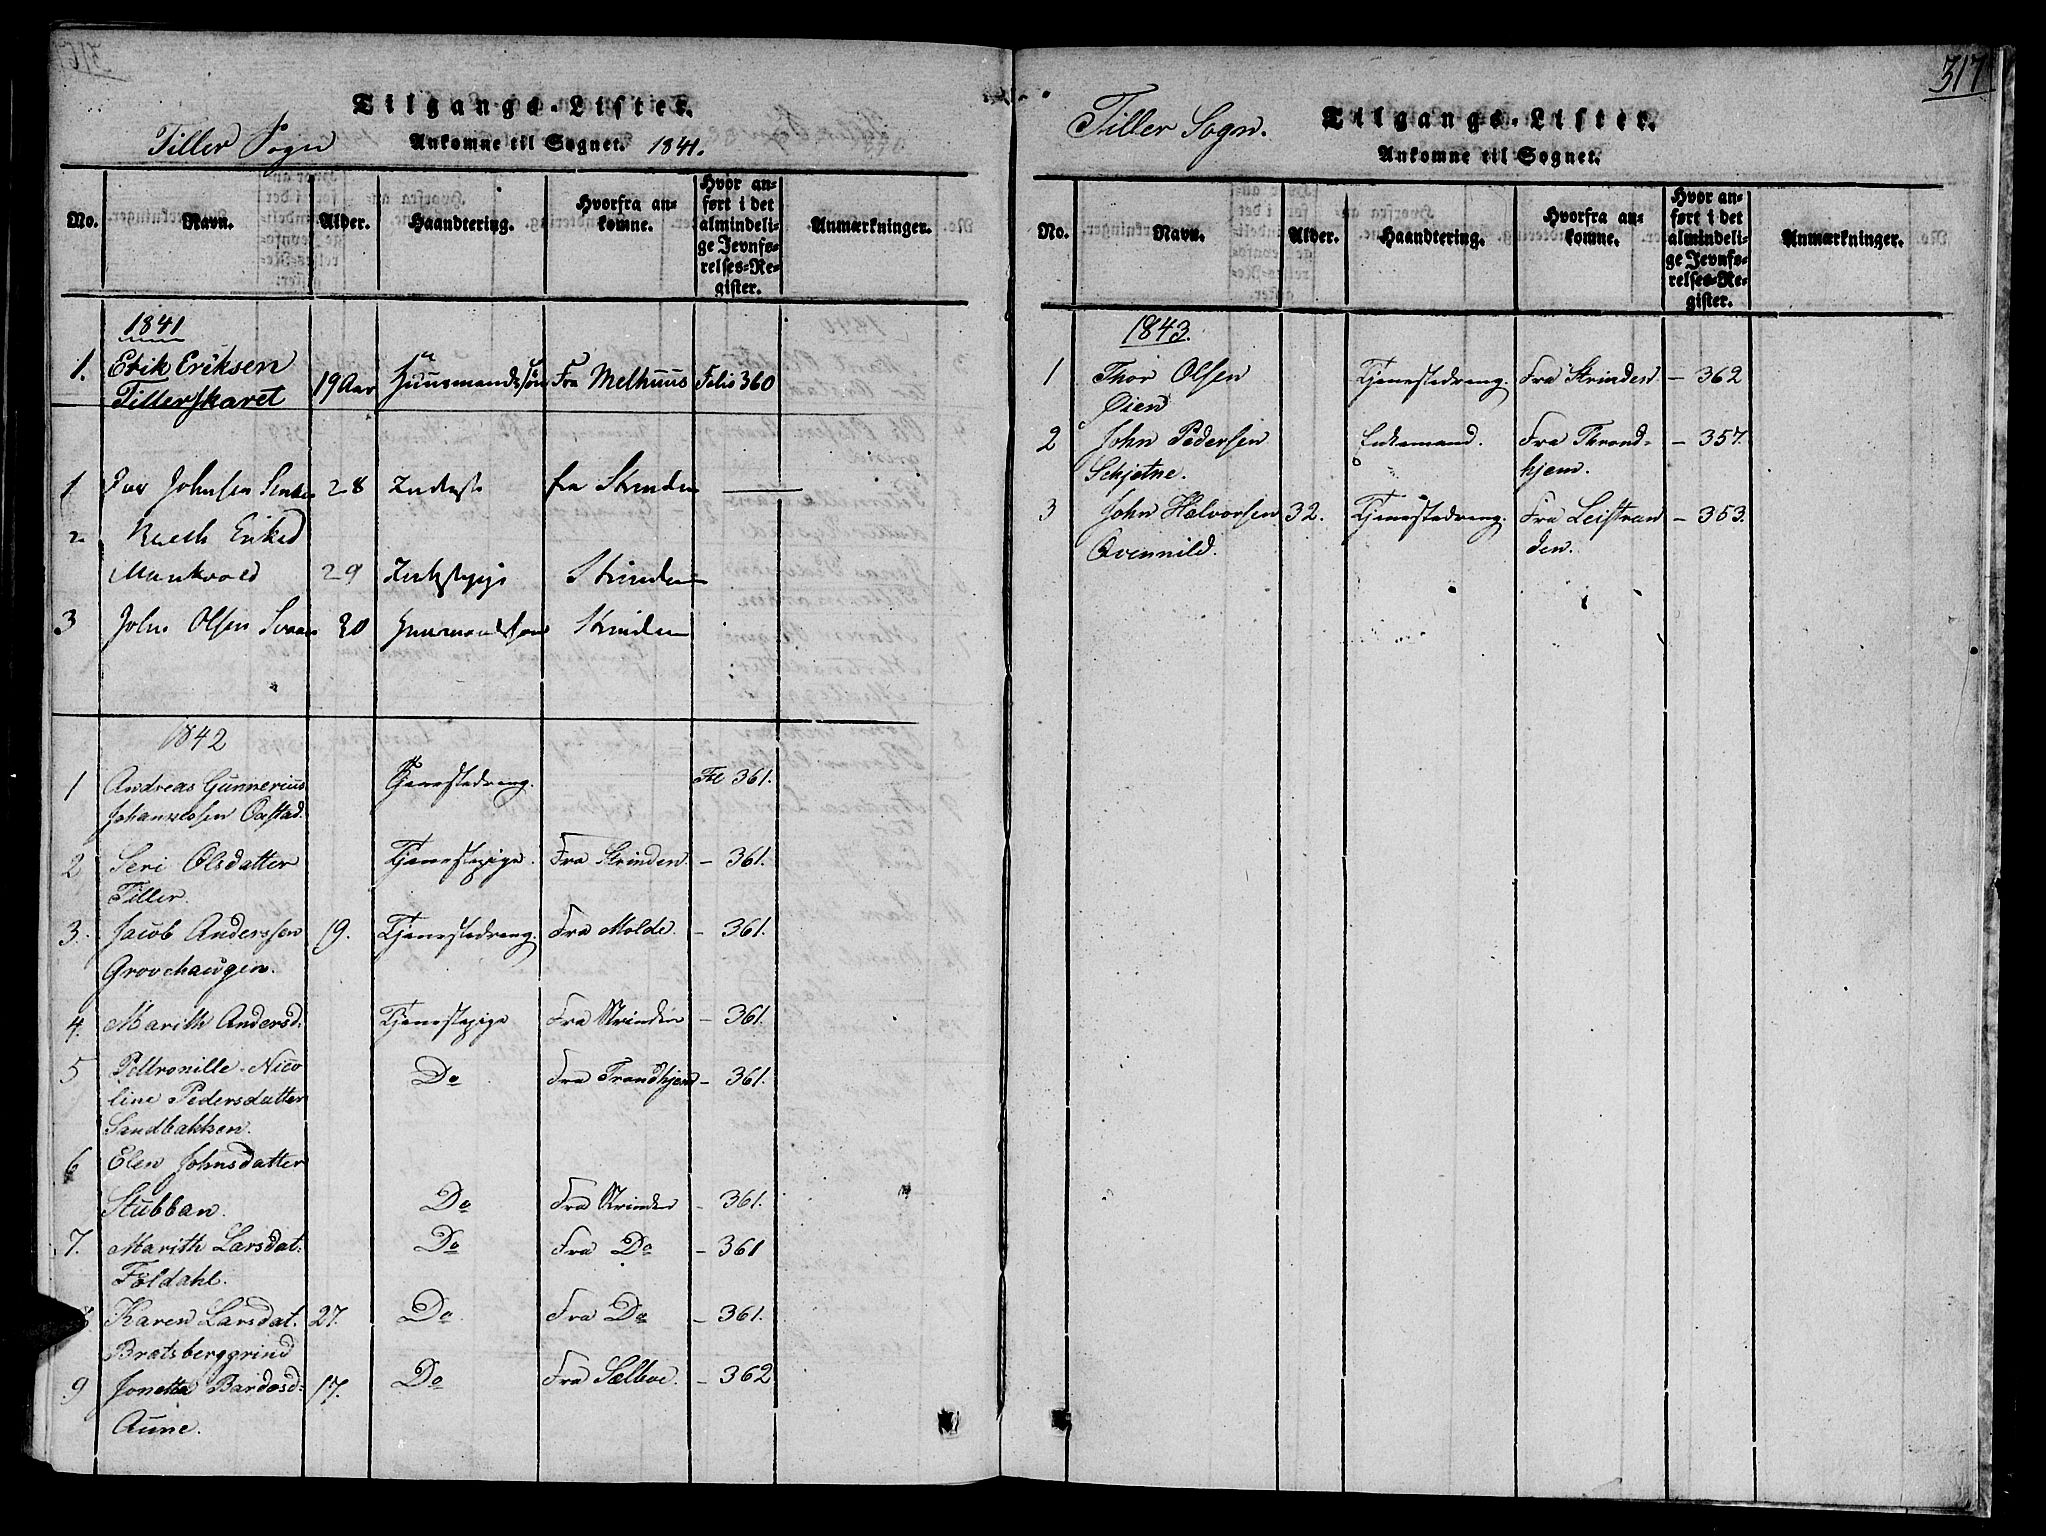 Tilgangs-Lister.
Tiller Sogn
Ankomne til Sognet. 1841.
No. Navn. Alder. Haandtering. Hvorfra ankomne. Hvor anført i det almindelige Jevnførelses-Register. Anmærkninger.
1841
1. Erik Eriksen 19 Aar Huusmandssøn Fra Melhuus Folio 360
Tillerskaret
1 Iver Johnsen 28 Inderst fra Strinden
2 Berith Eriksd
Markvold 29 Strinden
3 John Olsen 30 Huusmandssøn Strinden
1842
1 Andreas Gunnerius Tjenestedreng. Fol 361.
Johannessen
2 Seri Olsdatter Tjenestepige. Fra Strinden. — 361.
Tiller.
3. Jacob Anderssen 19. Tjenestedreng. Fra Molde. — 361.
Grovehaugen.
4. Marith Andersd. Tjenestepige Fra Strinden — 361.
5 Pettronille Nico Do Fra Trondhjem — 361.
line Pedersdatter
Sandbakken.
6 Elen Johnsdatter
Stubban. Do Fra Strinden — 361.
7. Marith Larsdat. Do Fra Do — 361
Foldahl.
8. Karen Larsdat. 27. Do. Fra Do — 361.
Bratsberggrind
9 Jonetta Bardosd. 17. Do Fra Sælboe. — 362
Aune.
317
Tiller Sogn.
Tilgangs-Lister.
Ankomne til Sognet.
No. Navn. Alder. Haandtering. Hvorfra ankomne. Hvor anført i det almindelige Jevnførelses-Register. Anmærkninger.
1843.
1 Thor Olsen Tjenestedreng. Fra Strinden — 362
Øien
2 John Pedersen Enkemand. Fra Thrond- — 357.
Schjetne. hjem.
3 John Halvorsen 32. Tjenestedreng. Fra Leistran — 353.
Qvennild. den.